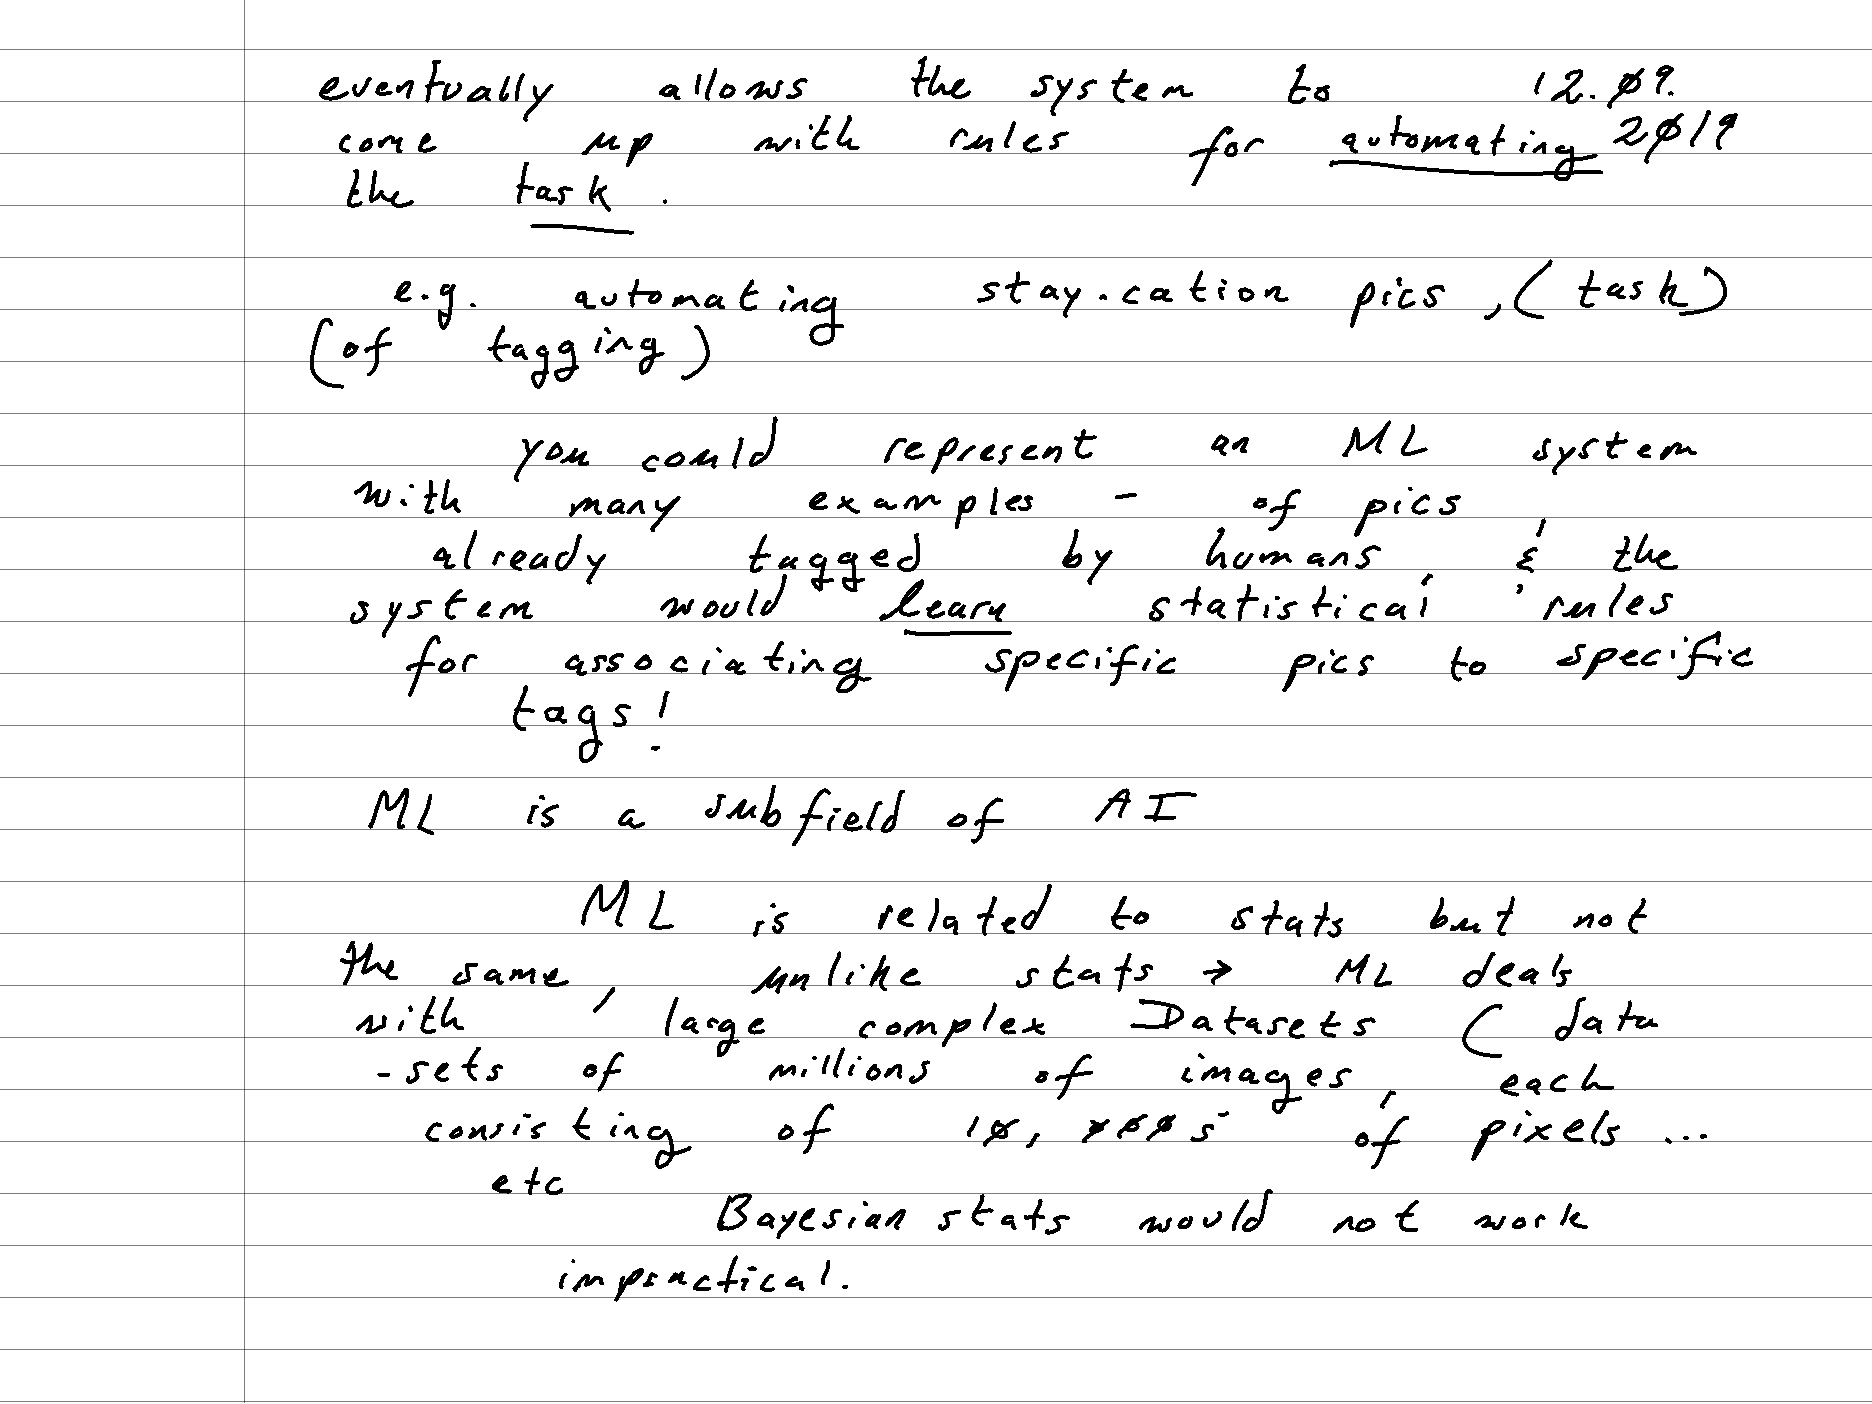 eventually allows the system to 12.09.
come up with rules for automating 2019
the task.
e.g. automating stay.cation pics, (task)
(of tagging)
you could represent an ML system
with many examples - of pics
already tagged by humans, & the
system would learn statistical rules
for associating specific pics to specific
tags!
ML is a subfield of AI
ML is related to stats but not
the same, unlike stats → ML deals
with large complex Datasets ( data
-sets of millions of images, each
consisting of 10,000s of pixels ...
etc
Bayesian stats would not work
impractical.